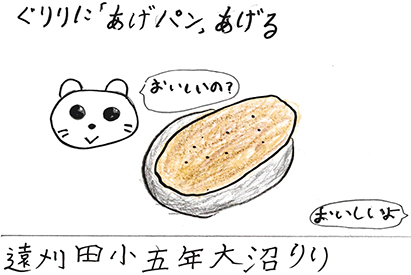 ぐりりに「あげパン」あげる
おいしいの?
おいしいよ
遠刈田小五年大沼りり